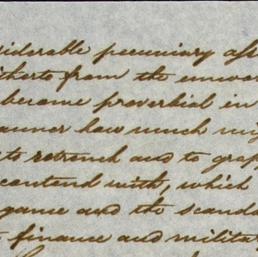 siderable pecuniary ass
itherto from the unwor
become proverbial in
anner how much mig
to retrench and to grap
contend with, which
gance and the scanda
finance and militar